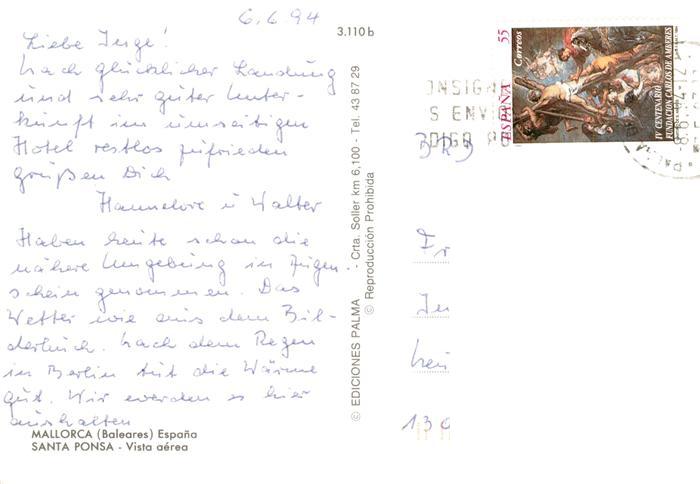 6.6.94
Liebe Inge!
Nach glücklicher Landung
und sehr guter Unter-
kunft im umseitigen
Hotel restlos zufrieden
grüßen Dich
Hannelore u Walter
Haben heute schon die
nähere Umgebung in Augen-
schein genommen. Das
Wetter wie aus dem Bil-
derbuch. Nach dem Regen
in Berlin tut die Wärme
gut. Wir werden es hier
aushalten
MALLORCA (Baleares) España
SANTA PONSA - Vista aérea
3.110 b
© EDICIONES PALMA - Crta. Soller km 6,100 - Tel. 43 87 29
© Reproducción Prohibida
55
Correos
ESPAÑA
IV CENTENARIO
FUNDACION CARLOS DE AMBERES
ONSIGN
S ENV
DIGO
Fr
In
130